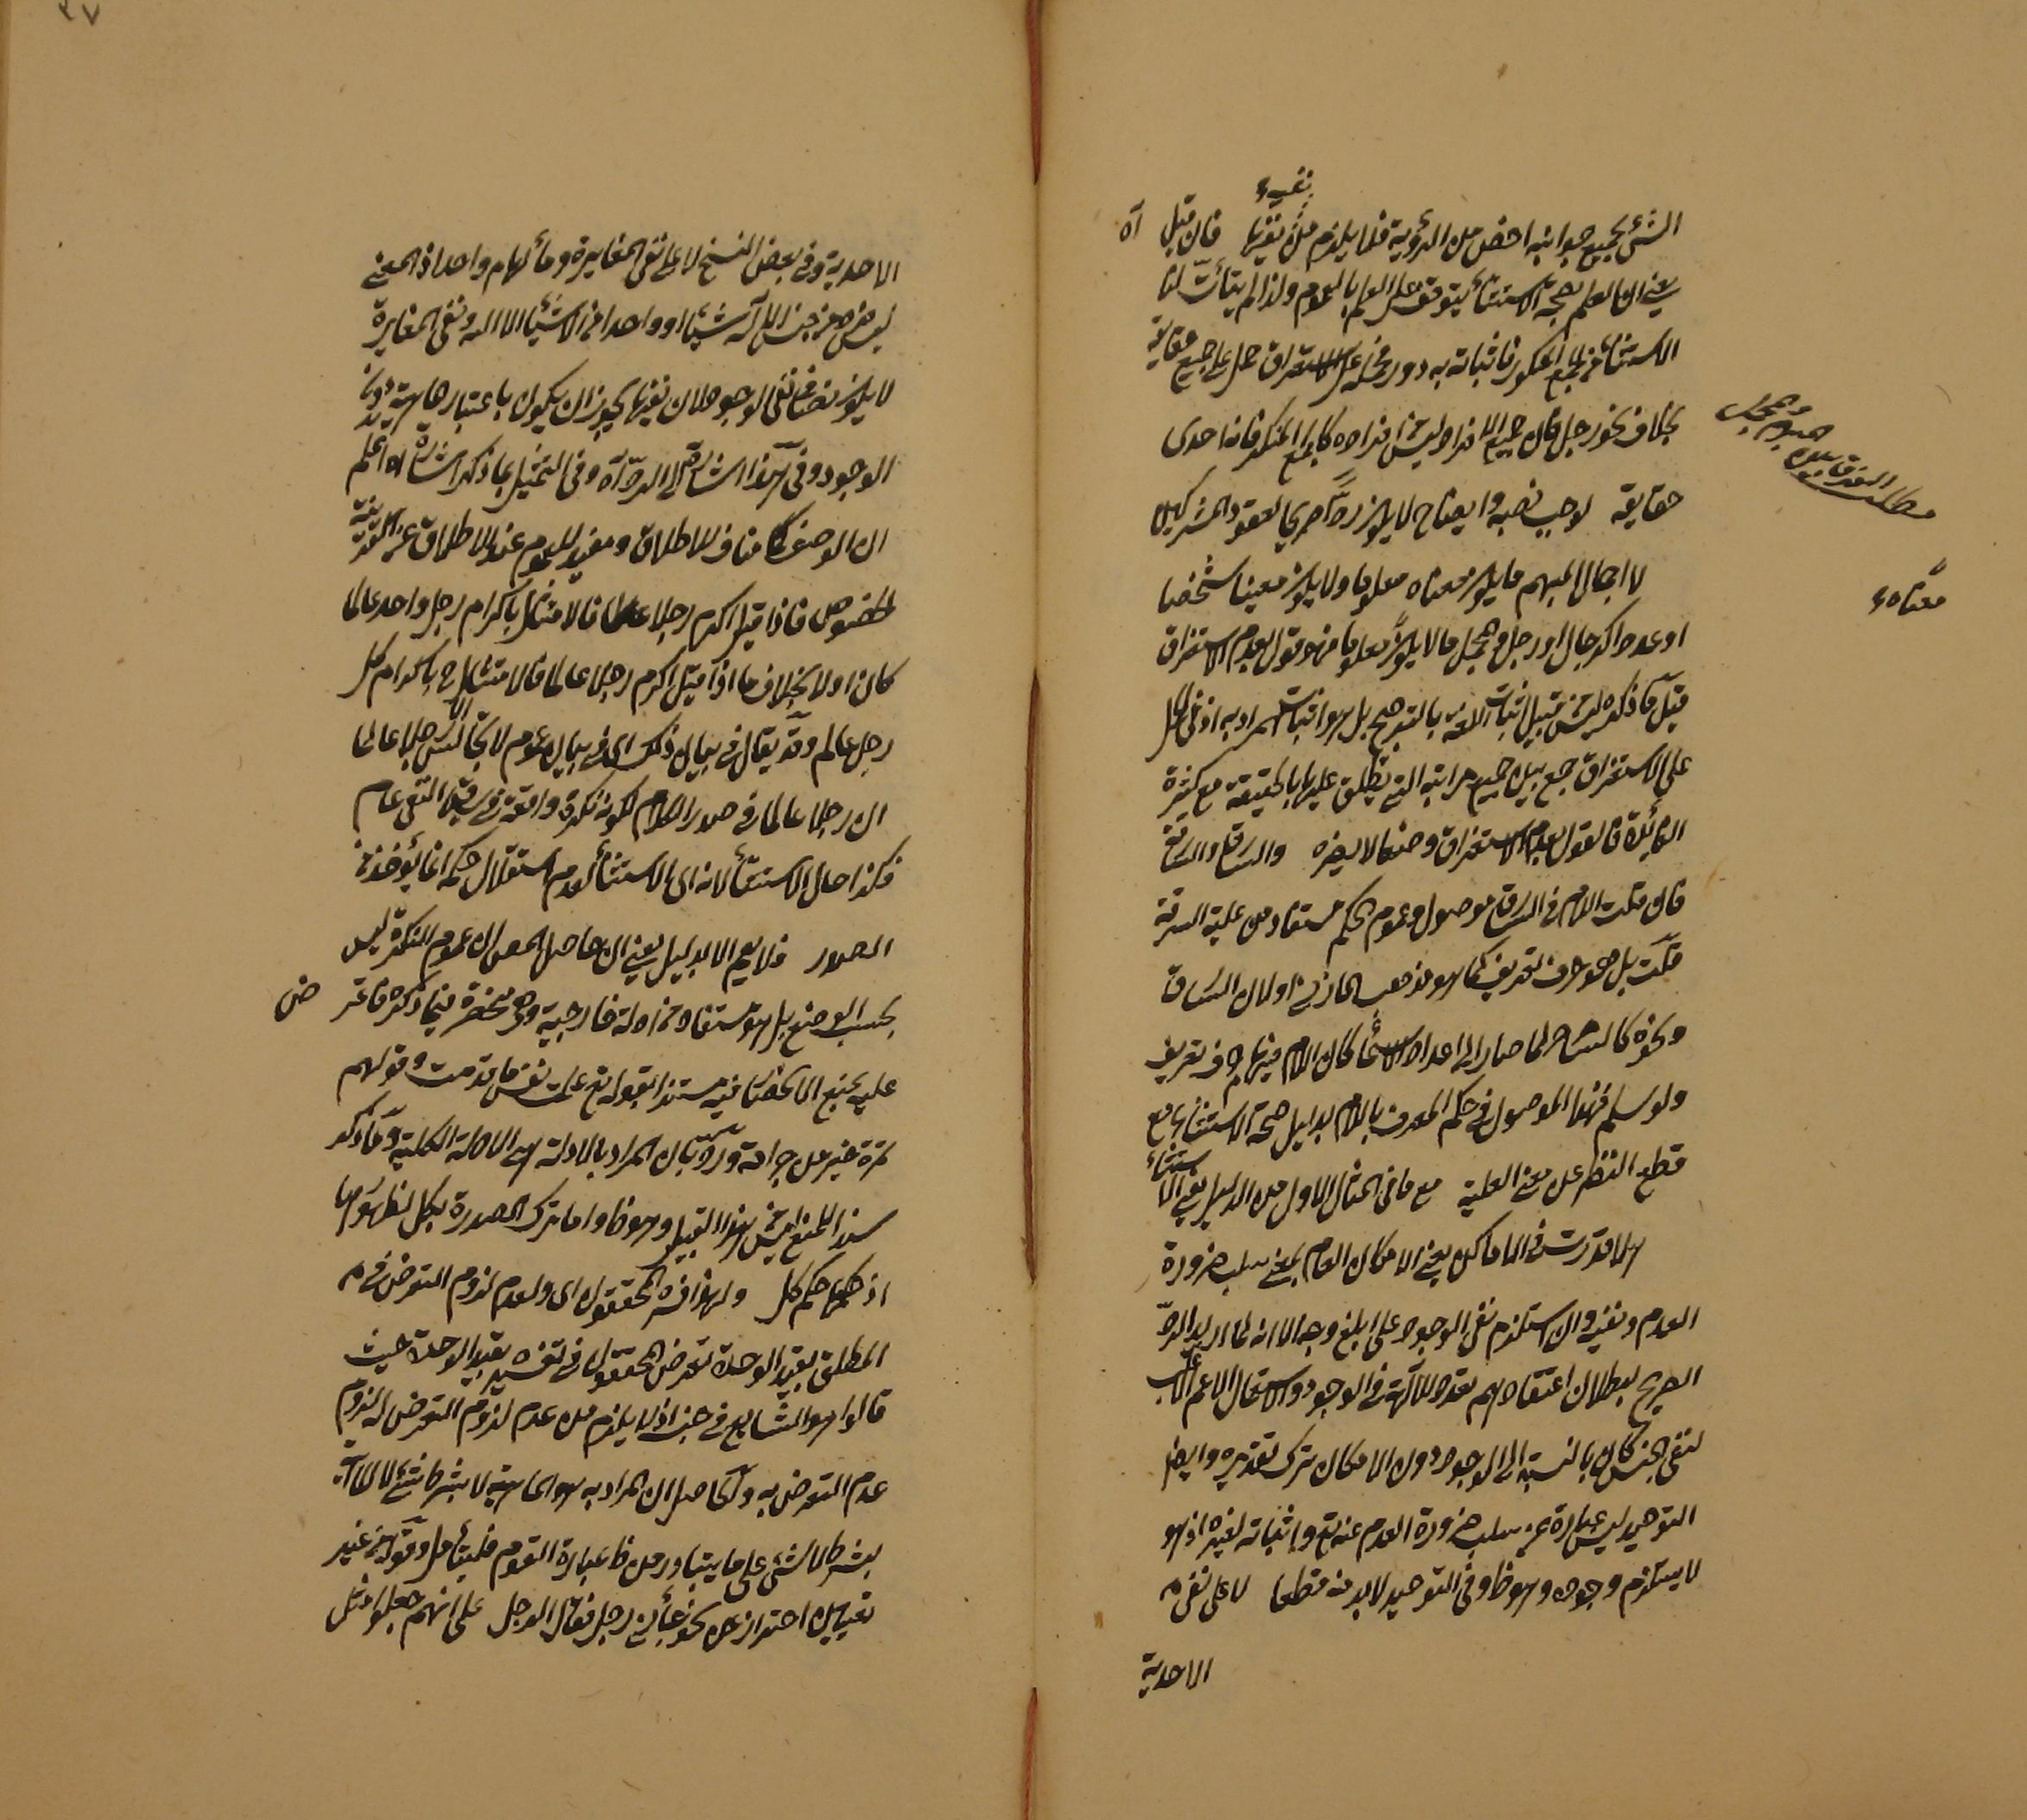 الشئ بجميع جوانبه اخص من الرؤية فلا يلزم من نفيه نفيها فان قيل آه
يعنى ان العلم بصحة الاستثناء يتوقف على العلم بالعموم ولذا لم يتأت لنا
الاستثناء من الجمع المنكور فاثباته به دور على الاستغراق حمل على جميع حقايقه
بخلاف نحو رجل فان جميع الافراد ليس افراده كالجمع المنكر فانه احدى
حقايقه لوجب نصبه وايضاح لا يكون ردا صريحا لعقود المشركين
لا اجمال المبهم ما يكون معناه معلوما ولا يكون معينا شخصا
او عددا كرجال او رجل والمجمل ما لا يكون معناه معلوما فهو قول بعدم الاستغراق
قيل ما ذكره ليس من قبيل اثبات اللغة بالترجيح بل هو اثبات المراد به اذ فى الحمل
على الاستغراق جمع بين جميع مراتبه التى يطلق عليها بالحقيقة مع كثرة
الفائدة فالقول بعدم الاستغراق وضعا لا يضره والسارق والسارقة
فان قلت اللام فى السارق موصول وعموم الحكم مستفاد من علية السرقة
قلت بل هو حرف تعريف كما هو مذهب المازنى اولان السارق
ونحوه كالشاعر لما صار الى اعداد الاسماء كان اللام فيها حرف تعريف
ولو سلم فهذا الموصول فى حكم المعرف باللام بدليل صحة الاستثناء مع
قطع النظر عن معنى العلية مع ما فى المثال الاول من الدليل يعنى الاستثناء
هلا قدرت فى الاماكن يعنى الامكان العام بمعنى سلب ضرورة
العدم ونفيه وان استلزم نفى الوجود على ابلغ وجه الا انه لما اريد الرد
الصريح لبطلان اعتقادهم تعدد الآلهة فى الوجود والاستعمال الاعم الاغلب
لنفى الجنس كان بالنسبة الى الوجود دون الامكان ترك تقديره وايضا
التوحيد ليس عبارة عن سلب ضرورة العدم عنه تع واثباته لغيره اذ هو
لا يستلزم وجوده وهو ظ وفى التوحيد لابد منه قطعا لا على نفى
الاحدية
مطلب الفرق بين المبهم والمجمل
معناه
٣٧
الاحدية وفى بعض النسخ لا على نفى المغايرة ومألهما واحد اذ المعنى
ليس من جنس الآله شيئا او واحدا من الاشياء الا الله ونفى المغايرة
لا يكون نصا فى نفى الوجود لان نفيها يجوز ان يكون باعتبار ماهيته دون
الوجود وفى هذا اشارة الى الرد آه وفى التمثيل بما ذكر اشارة الى اعلم
ان الوصف كما مناف للاطلاق ومفيد للعموم عند الاطلاق عن القرينة
الخصوص فاذا قيل اكرم رجلا عالما فالامتثال باكرام رجل واحد عالما
كان اولا بخلاف ما اذا قيل اكرم رجلا عالما فالامتثال ح باكرام كل
رجل عالم وقد يقال فى بيان ذلك اى فى بيان عموم لا تجالس الا رجلا عالما
ان رجلا عالما فى صدر الكلام لكونه نكرة واقعة فى سياق النفى عام
فكذا حال الاستثناء لانه اى الاستثناء لعدم استقلال حكمه انما يؤخذ من
الصدر فلا يعم الا بدليل يعنى ان حاصل المعنى ان عموم النكرة ليس
بحسب الوضع بل هو مستفاد من ادلة خارجية وهى منحصرة فيما ذكره فاعتر ض
عليه بمنع الانحصار فيه مستندا بقوله تع علمت نفس ما قدمت وقولهم
تمرة خير من جرادة ورد بان المراد بالادلة هى الادلة الكلية وما ذكر
سند للمنع ليس من هذا القبيل وهو ظ واما ترك المصدرة بكل لظهورها
اذ حكمها حكم كل ولهذا فسره المحققون اى ولعدم لزوم التعرض فى
المطلق بقيد الوحدة تعرض المحققون فى تفسيره بقيد الوحدة حيث
قالوا هو الشايع فى جنسه اذ لا يلزم من عدم لزوم التعرض له لزوم
عدم التعرض به والحاصل ان المراد به هو الماهية لا بشرط شئ لا الماهية
بشرط لا شئ على ما يتبادر من ظ عبارة القوم فليتأمل وقوله من غير
تعيين احتراز عن نحو جاءنى رجل فقال الرجل على انهم جعلوا مثل